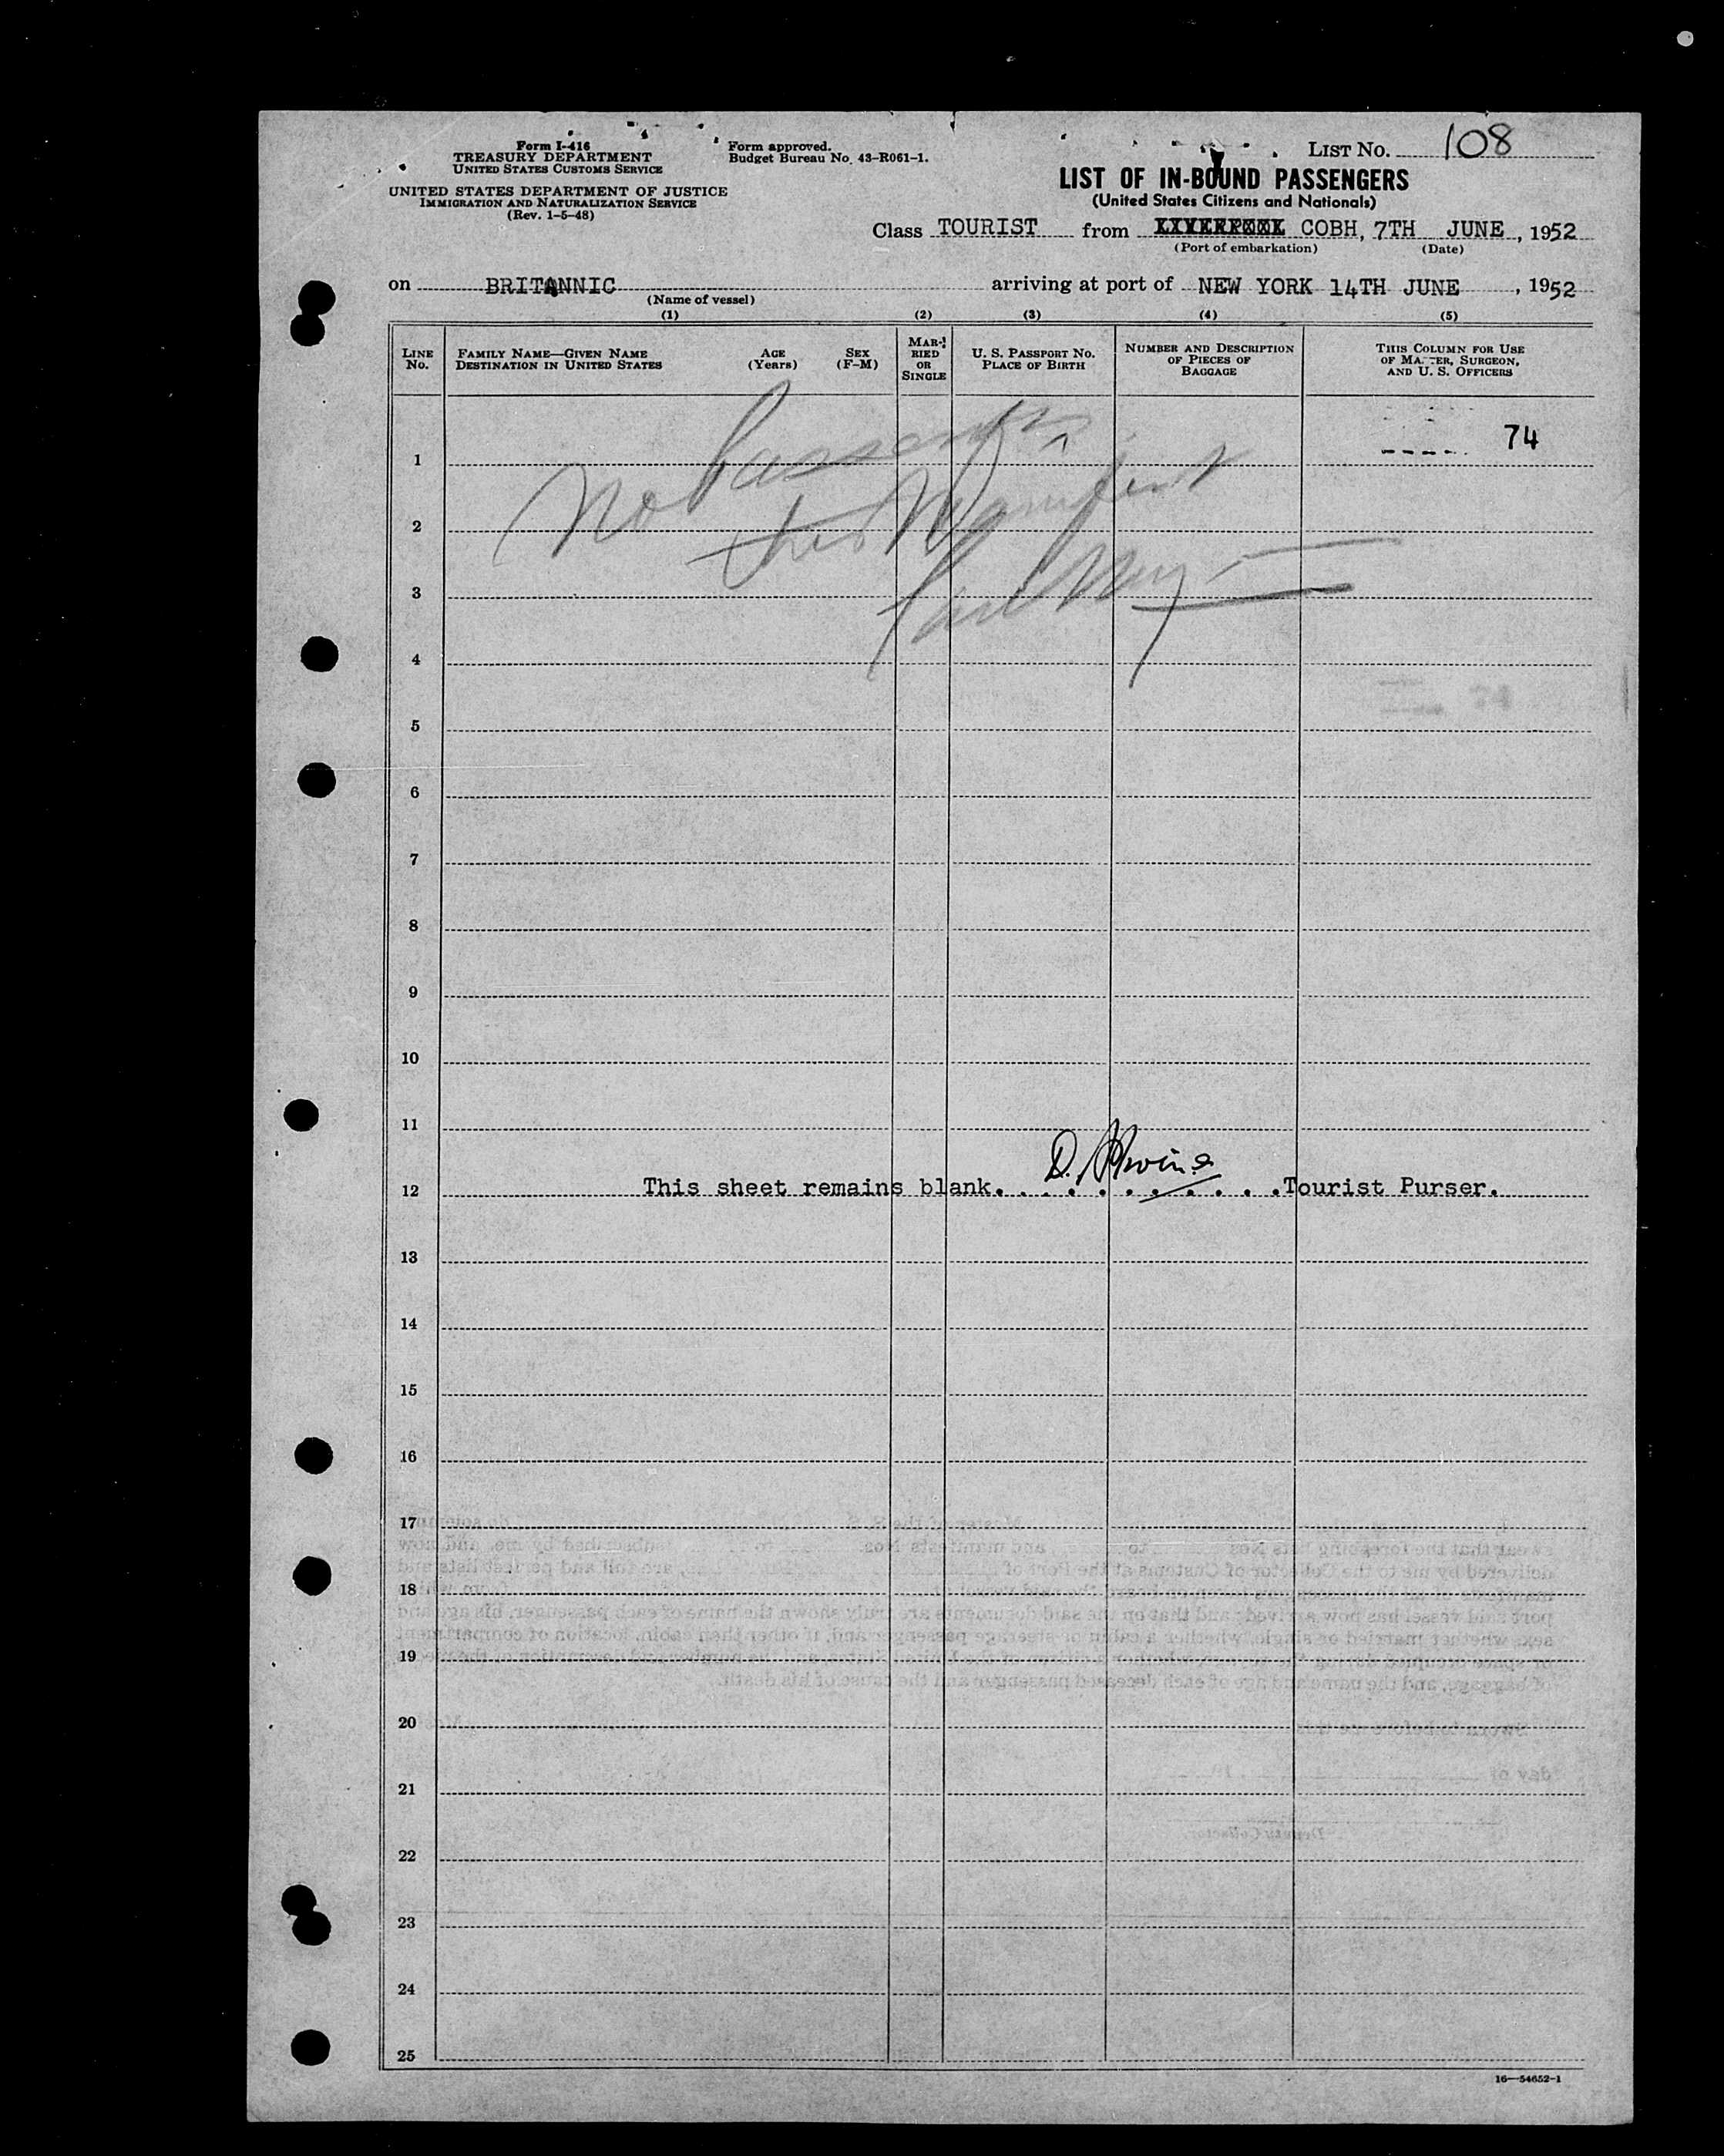 Form I-416
TREASURY DEPARTMENT
UNITED STATES CUSTOMS SERVICE
UNITED STATES DEPARTMENT OF JUSTICE
IMMIGRATION AND NATURALIZATION SERVICE
(Rev. 1-5-48)
Form approved.
Budget Bureau No. 43-R061-1.
LIST NO. 108
LIST OF IN-BOUND PASSENGERS
(United States Citizens and Nationals)
Class TOURIST from LIVERPOOL COBH, 7TH JUNE, 1952
(Port of embarkation) (Date)
on BRITANNIC arriving at port of NEW YORK 14TH JUNE, 1952
(Name of vessel)
(1) (2) (3) (4) (5)
LINE No.
FAMILY NAME—GIVEN NAME
DESTINATION IN UNITED STATES
AGE (Years)
SEX (F-M)
MARRIED OR SINGLE
U. S. PASSPORT NO.
PLACE OF BIRTH
NUMBER AND DESCRIPTION
OF PIECES OF
BAGGAGE
THIS COLUMN FOR USE
OF MASTER, SURGEON,
AND U. S. OFFICERS
74
No Passengers
this Manifest
1
2
3
4
5
6
7
8
9
10
11
12 This sheet remains blank. D. Irvine Tourist Purser.
13
14
15
16
17
18
19
20
21
22
23
24
25
16—54652-1